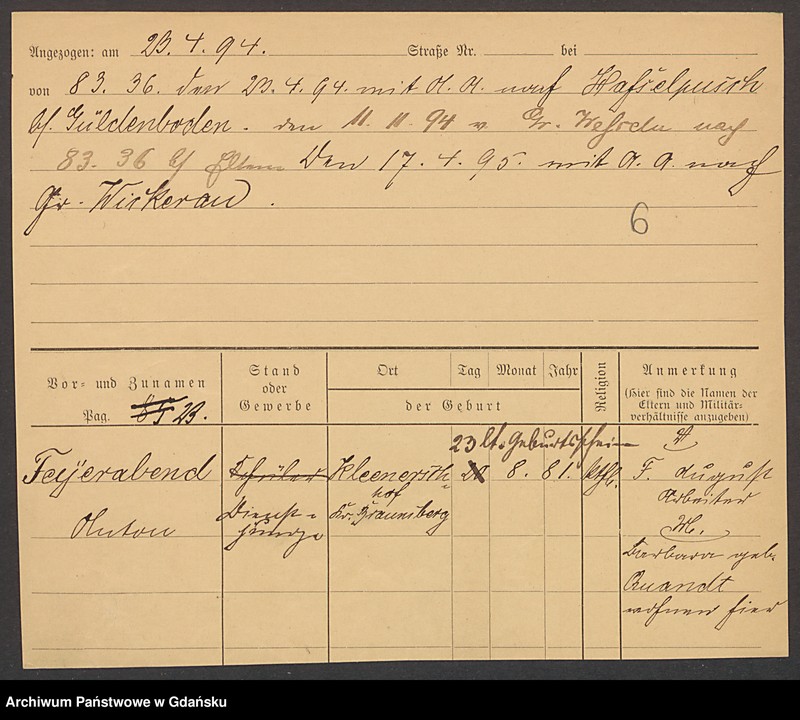 Angezogen: am 23.4.94. Straße Nr. bei
von 83. 36. den 23.4.94. mit A. A. nach
bf. Güldenboden. den 11. 11. 94 v. Gr. nach
83. 36 Eltern Den 17. 4. 95. mit A. A. nach
Gr. Wickerau.
6
Vor- und Zunamen Stand oder Gewerbe Ort Tag Monat Jahr Religion Anmerkung
Pag. 23. der Geburt (Hier sind die Namen der Eltern und Militär-verhältnisse anzugeben)
23 lt. Geburtsschein
Feyerabend Schüler Kleenersth- 20 8. 81. kthl. F. August
hof Arbeiter
Anton Dienst- Kr. Braunsberg M.
junge Barbara geb.
Quandt
wohnen hier
Archiwum Państwowe w Gdańsku